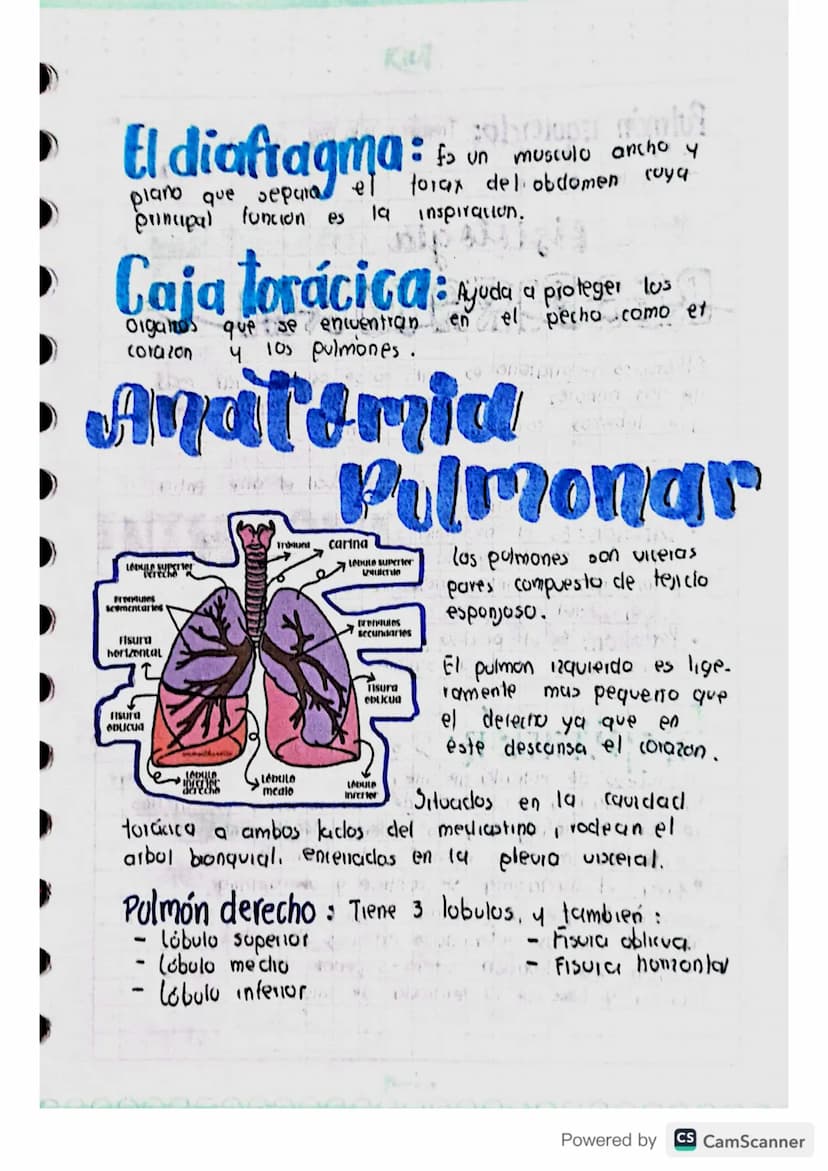 El diafragma: Es un musculo ancho y
plano que separa el torax del abdomen cuya
principal funcion es la inspiracion.
Caja torácica: Ayuda a proteger los
organos que se encuentran en el pecho como el
corazon y los pulmones.
Anatomia
Pulmonar
Tráquea
Carina
Lóbulo superior
derecho
Lóbulo superior
izquierdo
Bronquios
segmentarios
Bronquios
secundarios
Fisura
horizontal
Fisura
oblicua
Fisura
oblicua
Lóbulo
inferior
derecho
Lóbulo
medio
Lóbulo
inferior
los pulmones son viceras
pares compuesto de tejido
esponjoso.
El pulmon izquierdo es lige-
ramente mas pequeño que
el derecho ya que en
éste descansa el corazon.
Situados en la cavidad
torácica a ambos lados del mediastino, rodean el
arbol bronquial, encerrados en la pleura visceral.
Pulmón derecho: Tiene 3 lobulos, y tambien:
- Lóbulo superior
- Fisura oblicua
- Lóbulo medio
- Fisura horizontal
- Lóbulo inferior
Powered by CS CamScanner